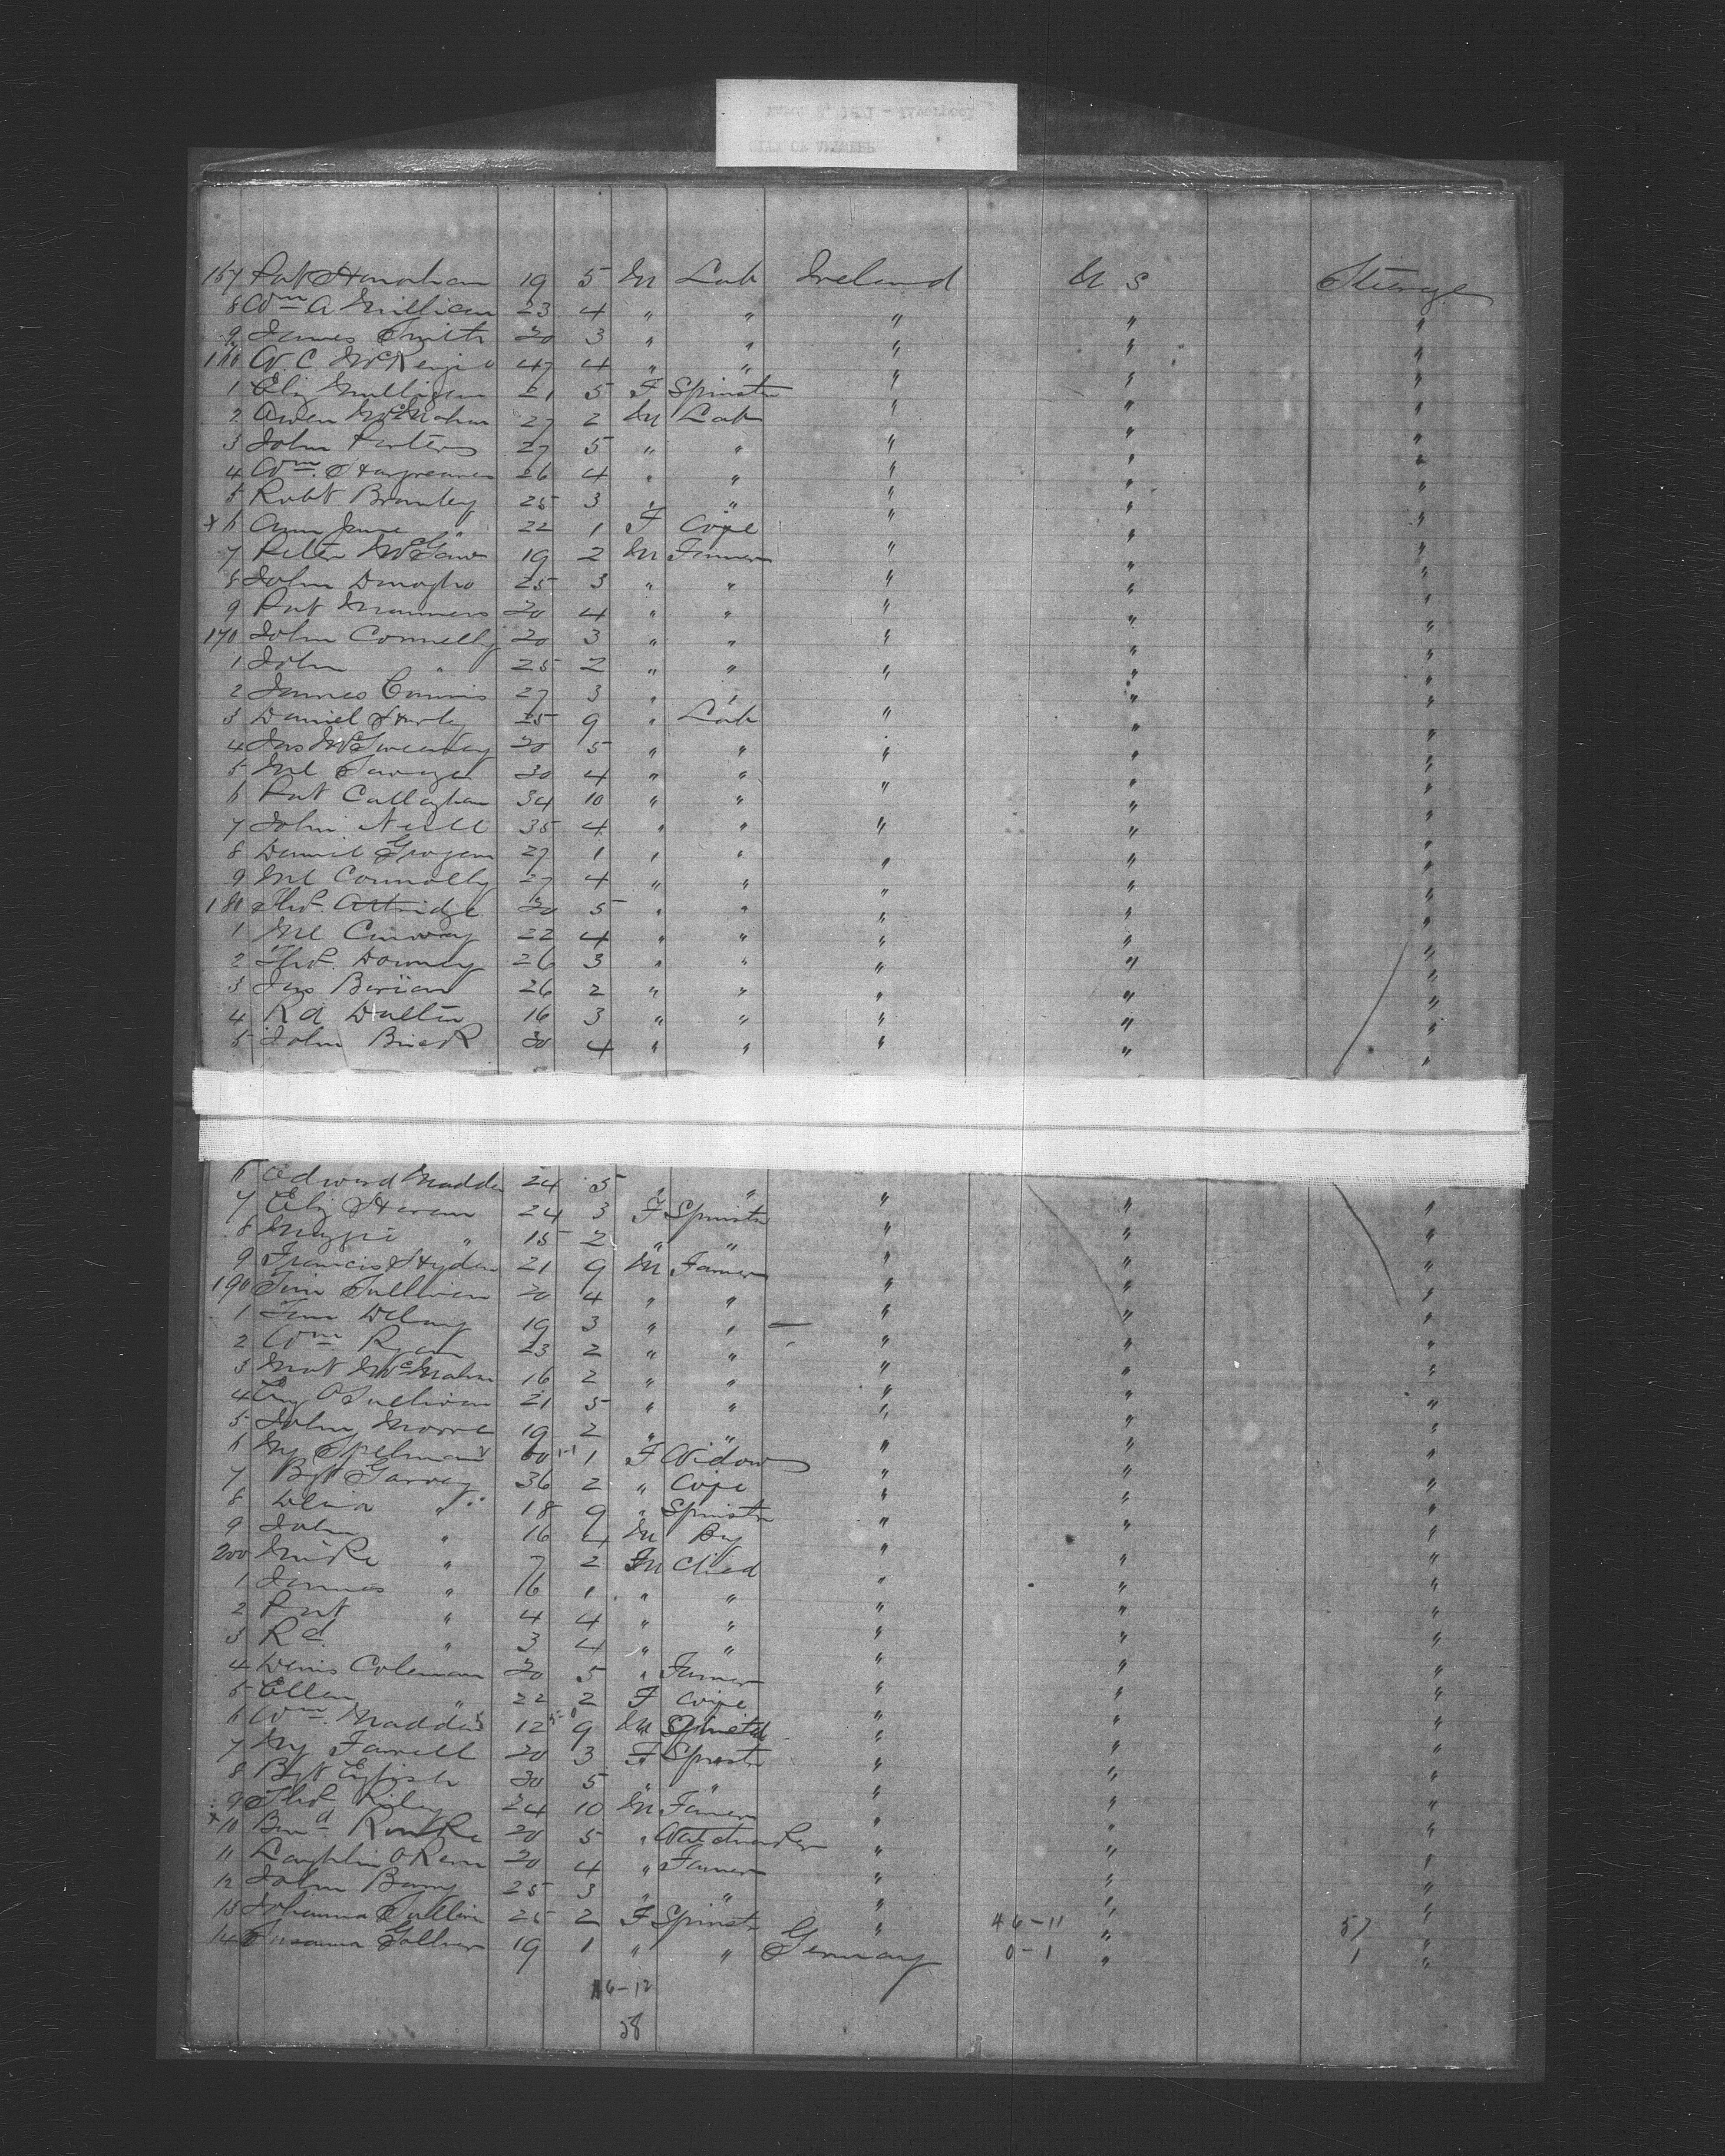 157 Pat Hanrahan 19 5 M Lab Ireland U S Steerage
8 Wm A Millican 23 4 " " " " "
9 James Smith 20 3 " " " " "
160 W. C McKenzie 47 4 " " " " "
1 Eliz Mulligan 21 5 F Spinster " " "
2 Owen McMahon 27 2 M Lab " " "
3 John Porters 27 5 " " " " "
4 Wm Hargreaves 26 4 " " " " "
5 Robt Bramley 25 3 " " " " "
x 6 Ann Jane " 22 1 F Wife " " "
7 Peter McGaw 19 2 M Farmer " " "
8 John Donogho 25 3 " " " " "
9 Pat Manners 20 4 " " " " "
170 John Connelly 20 3 " " " " "
1 John " 25 2 " " " " "
2 James 27 3 " " " " "
3 Daniel Hurly 25 9 " Lab " " "
4 Jas McSweeney 20 5 " " " " "
5 Ml Savage 30 4 " " " " "
6 Pat Callaghan 34 10 " " " " "
7 John Neill 35 4 " " " " "
8 Daniel Grogan 27 1 " " " " "
9 Ml Connolly 27 4 " " " " "
180 Thos. Attridge 30 5 " " " " "
1 Ml Conway 22 4 " " " " "
2 Thos. Downey 26 3 " " " " "
3 Jas 26 2 " " " " "
4 Rd Dalton 16 3 " " " " "
5 John Brick 30 4 " " " " "
6 Edward Madden 24 5 " " " " "
7 Eliz Haran 24 3 F Spinster " " "
8 Maggie " 15 2 " " " " "
9 Francis Hyden 21 9 M Farmer " " "
190 Tim Sullivan 20 4 " " " " "
1 Delany 19 3 " " " " "
2 Wm Ryan 23 2 " " " " "
3 Mat McMahon 16 2 " " " " "
4 O'Sullivan 21 5 " " " " "
5 John Moore 19 2 " " " " "
6 My Spelman 60 1 F Widow " " "
7 Bgt Garvey 36 2 " Wife " " "
8 Delia " 18 9 " Spinster " " "
9 John " 16 4 M Boy " " "
200 Mike " 7 2 M Child " " "
1 James " 6 1 " " " " "
2 Pat " 4 4 " " " " "
3 Rd " 3 4 " " " " "
4 Denis Coleman 20 5 " Farmer " " "
5 Ellen " 22 2 F Wife " " "
6 Wm. Madden 12 9 M " " "
7 My Farrell 20 3 F Spinster " " "
8 Bgt English 30 5 " " " " "
9 Thos. Riley 24 10 M Farmer " " "
x 10 Bernd Rourke 20 5 " Watchmaker " " "
11 Laughlin OKern 20 4 " Farmer " " "
12 John Barry 25 3 " " " " "
13 Johanna Sullivan 25 2 F Spinster " 46-11 " 57 "
14 Susanna 19 1 " " Germany 0-1 " 1 "
46-12
58